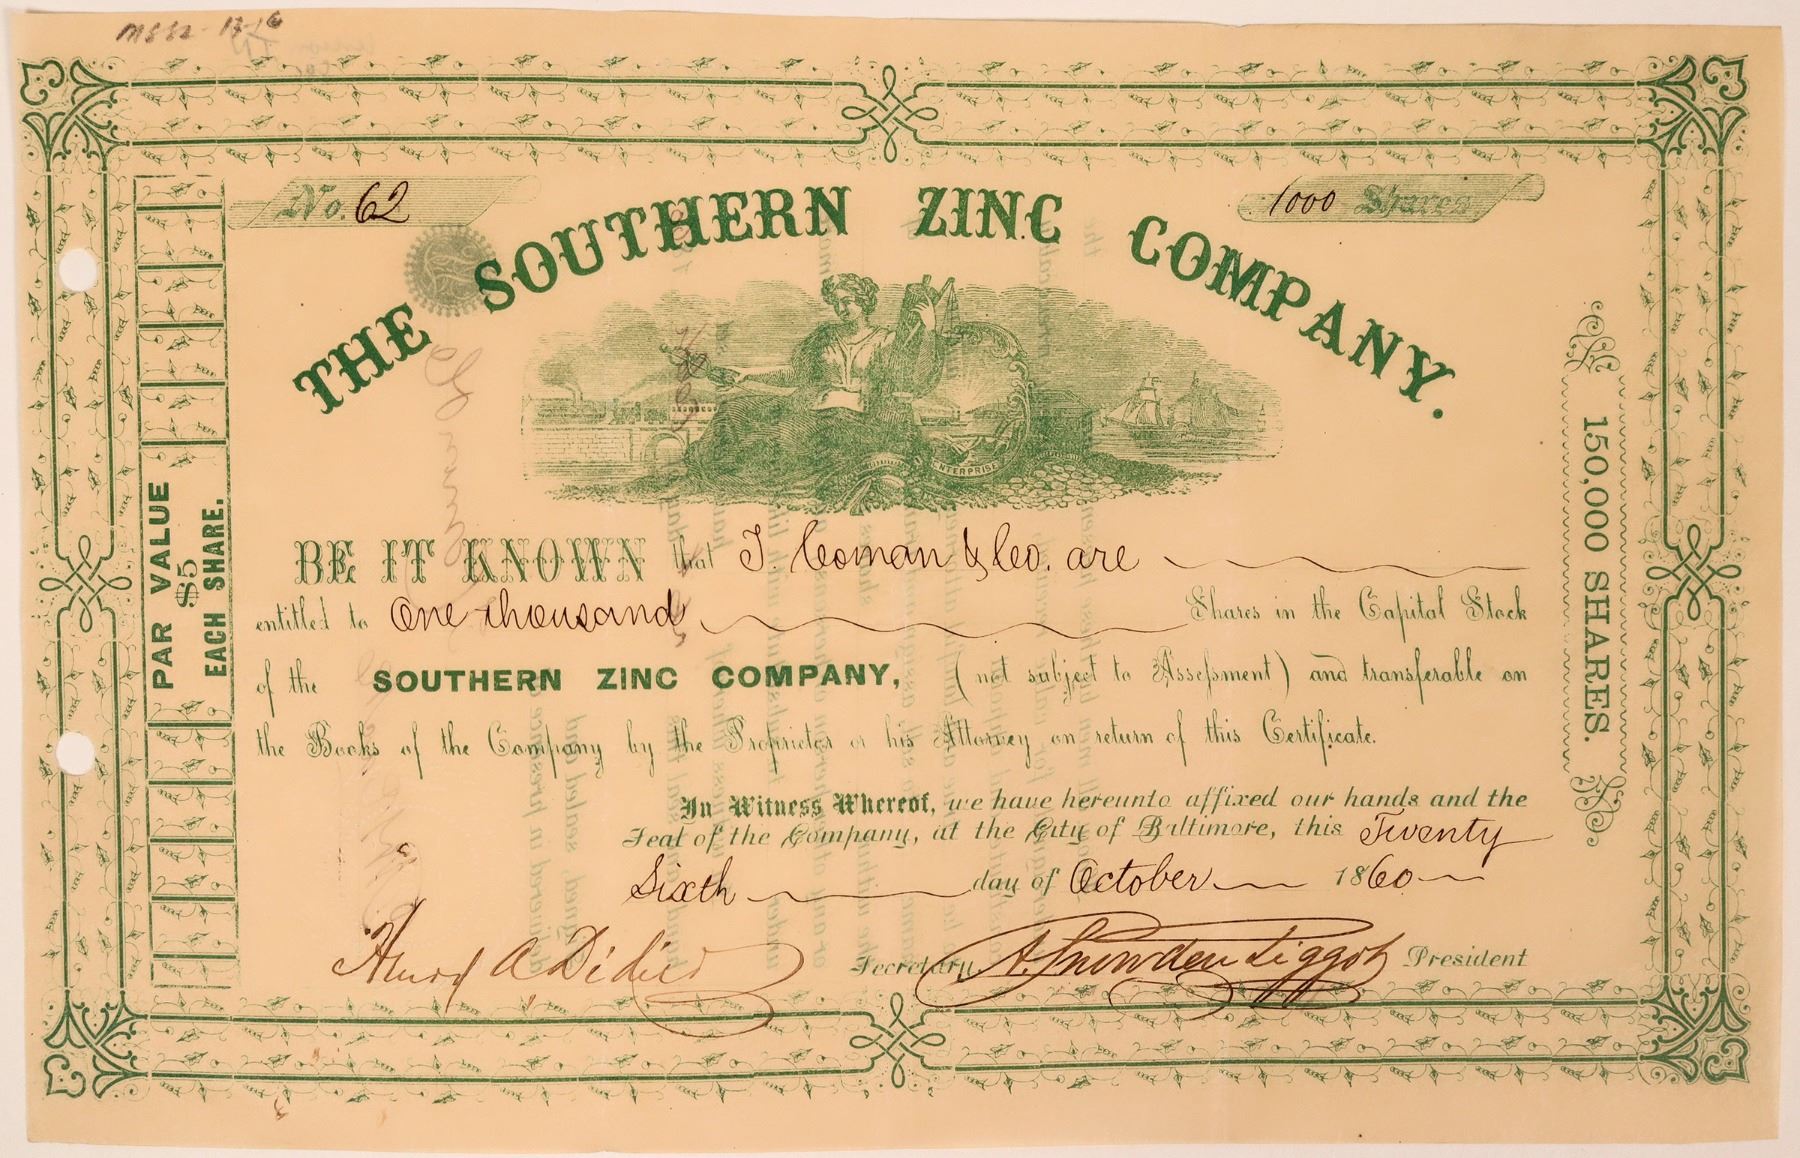 No. 62
1000 Shares
THE SOUTHERN ZINC COMPANY.
ENTERPRISE
PAR VALUE
$5
EACH SHARE.
150,000 SHARES.
BE IT KNOWN that J. Coman & Co. are
entitled to One thousand Shares in the Capital Stock
of the SOUTHERN ZINC COMPANY, (not subject to Assessment) and transferable on
the Books of the Company by the Proprietor or his Attorney on return of this Certificate.
In Witness Whereof, we have hereunto affixed our hands and the
Seal of the Company, at the City of Baltimore, this Twenty
Sixth day of October 1860
Henry A Didier Secretary. A. Snowden Piggot President